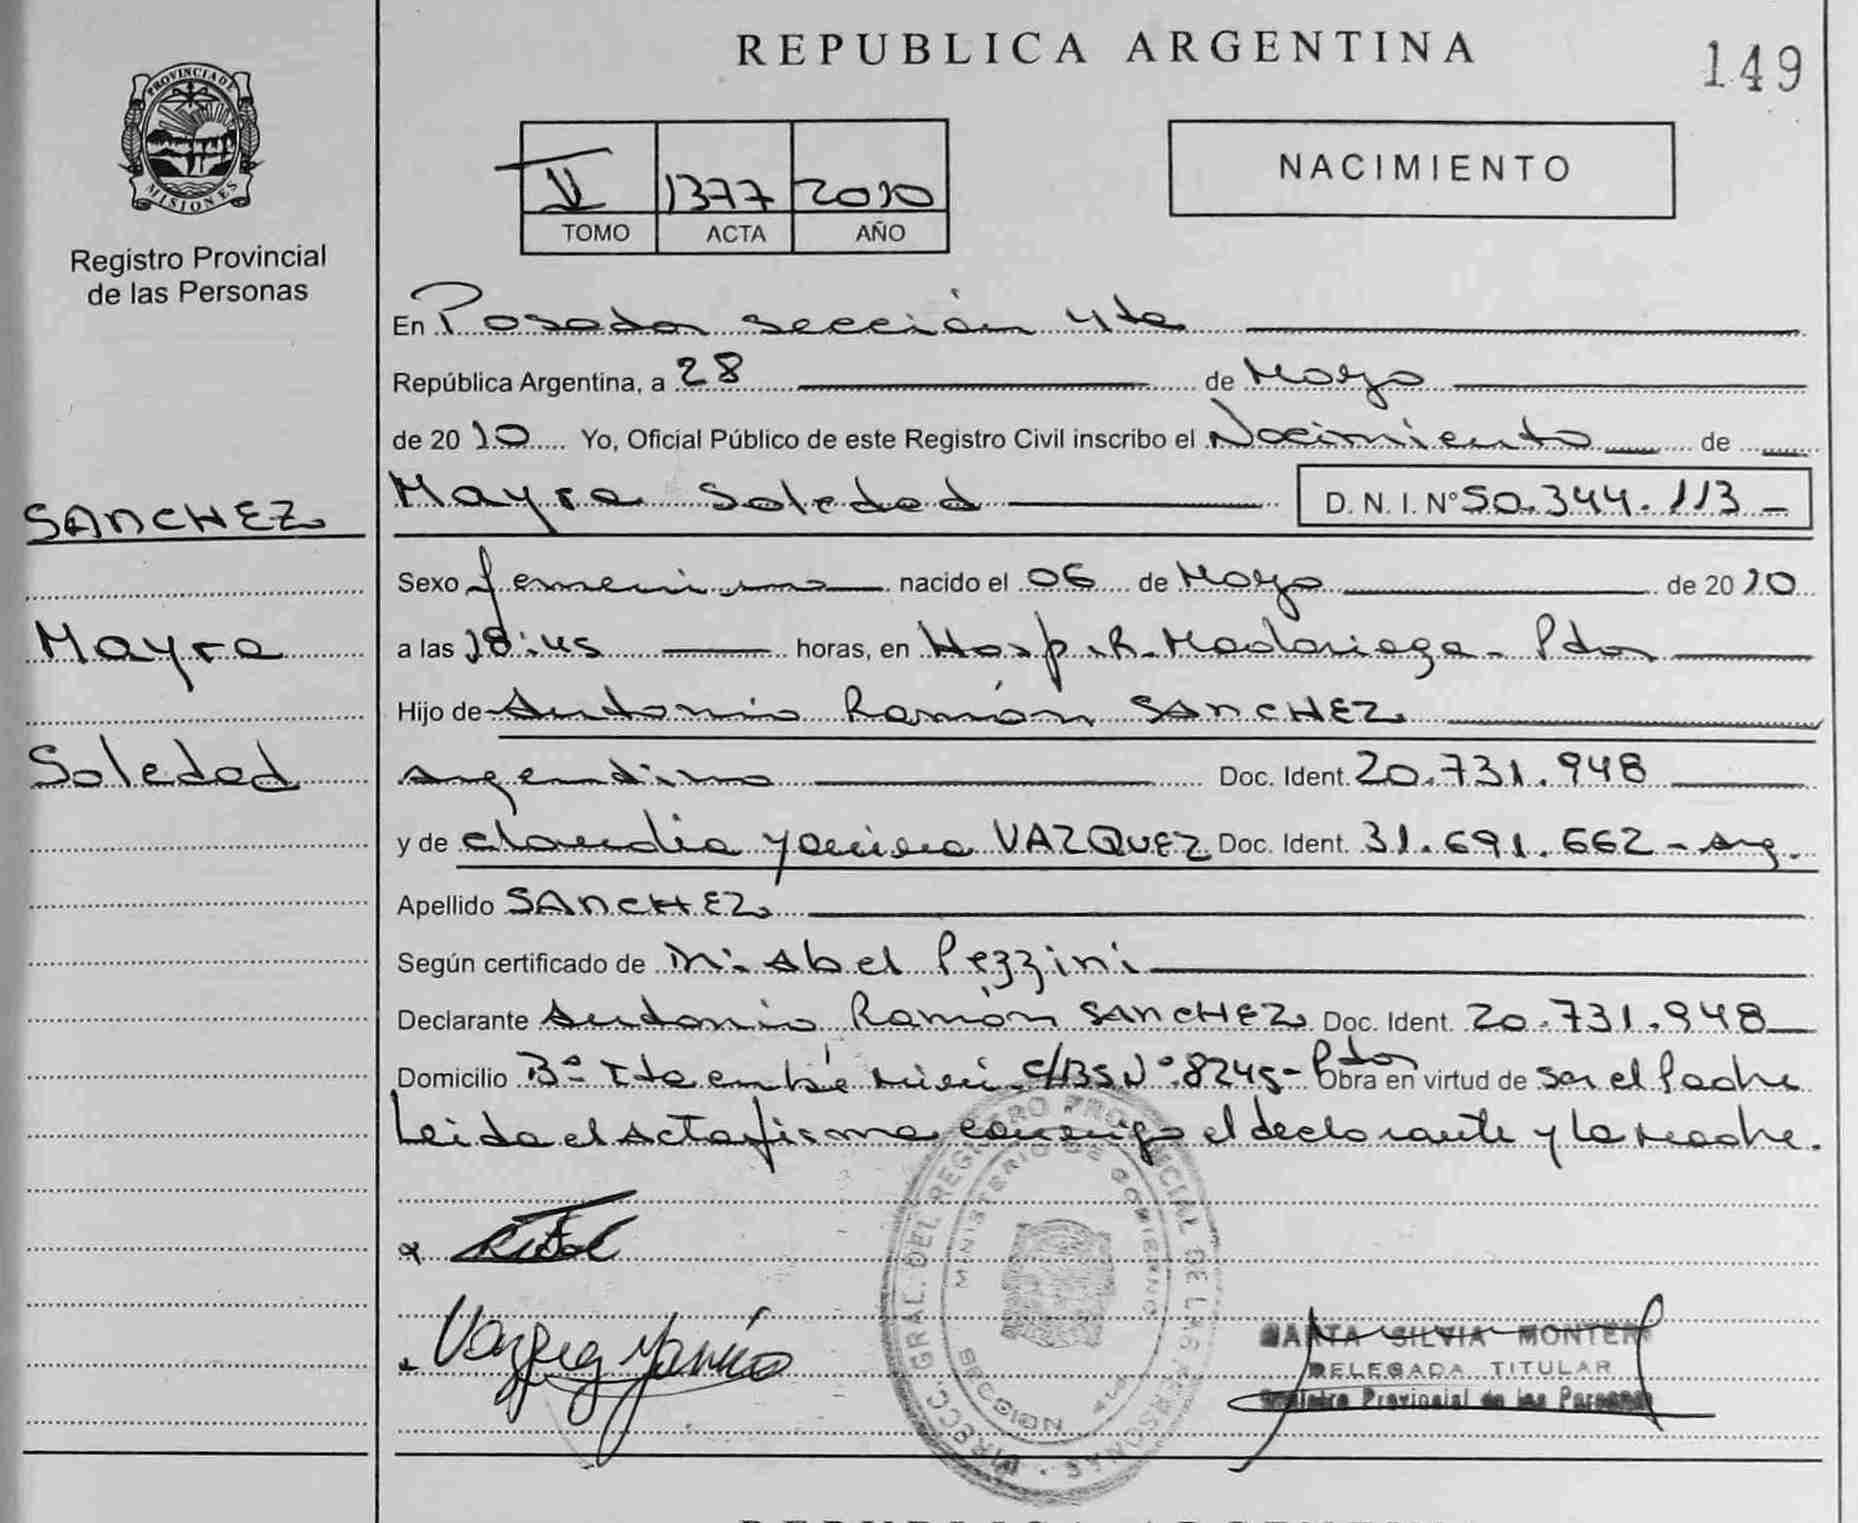 REPUBLICA ARGENTINA
149
PROVINCIA DE
MISIONES
Registro Provincial
de las Personas
1377 2010
TOMO ACTA AÑO
NACIMIENTO
En Posadas sección 4ta
República Argentina, a 28 de Mayo
de 2010 Yo, Oficial Público de este Registro Civil inscribo el Nacimiento de
Mayra Soledad D. N. I. Nº 50.344.113-
SANCHEZ
Mayra
Soledad
Sexo femenino nacido el 06 de Mayo de 2010
a las 18:45 horas, en Hosp. R. Madariaga - Pdas
Hijo de Antonio Ramón SANCHEZ
Argentino Doc. Ident. 20.731.948
y de Claudia Yanina VAZQUEZ Doc. Ident. 31.691.662 - Arg.
Apellido SANCHEZ
Según certificado de M. Abel Pezzini
Declarante Antonio Ramón SANCHEZ Doc. Ident. 20.731.948
Domicilio Bº Itaembé Miní - C/135 Nº 8245 - Pdas Obra en virtud de ser el Padre
Leida el Acta firma conmigo el declarante y la madre.
Vazquez Yanina
DIRECC. GRAL. DEL REGISTRO PROVINCIAL DE LAS PERSONAS
MINISTERIO DE GOBIERNO
SECCION 4ta
MARTA SILVIA MONTER
DELEGADA TITULAR
Registro Provincial de las Personas